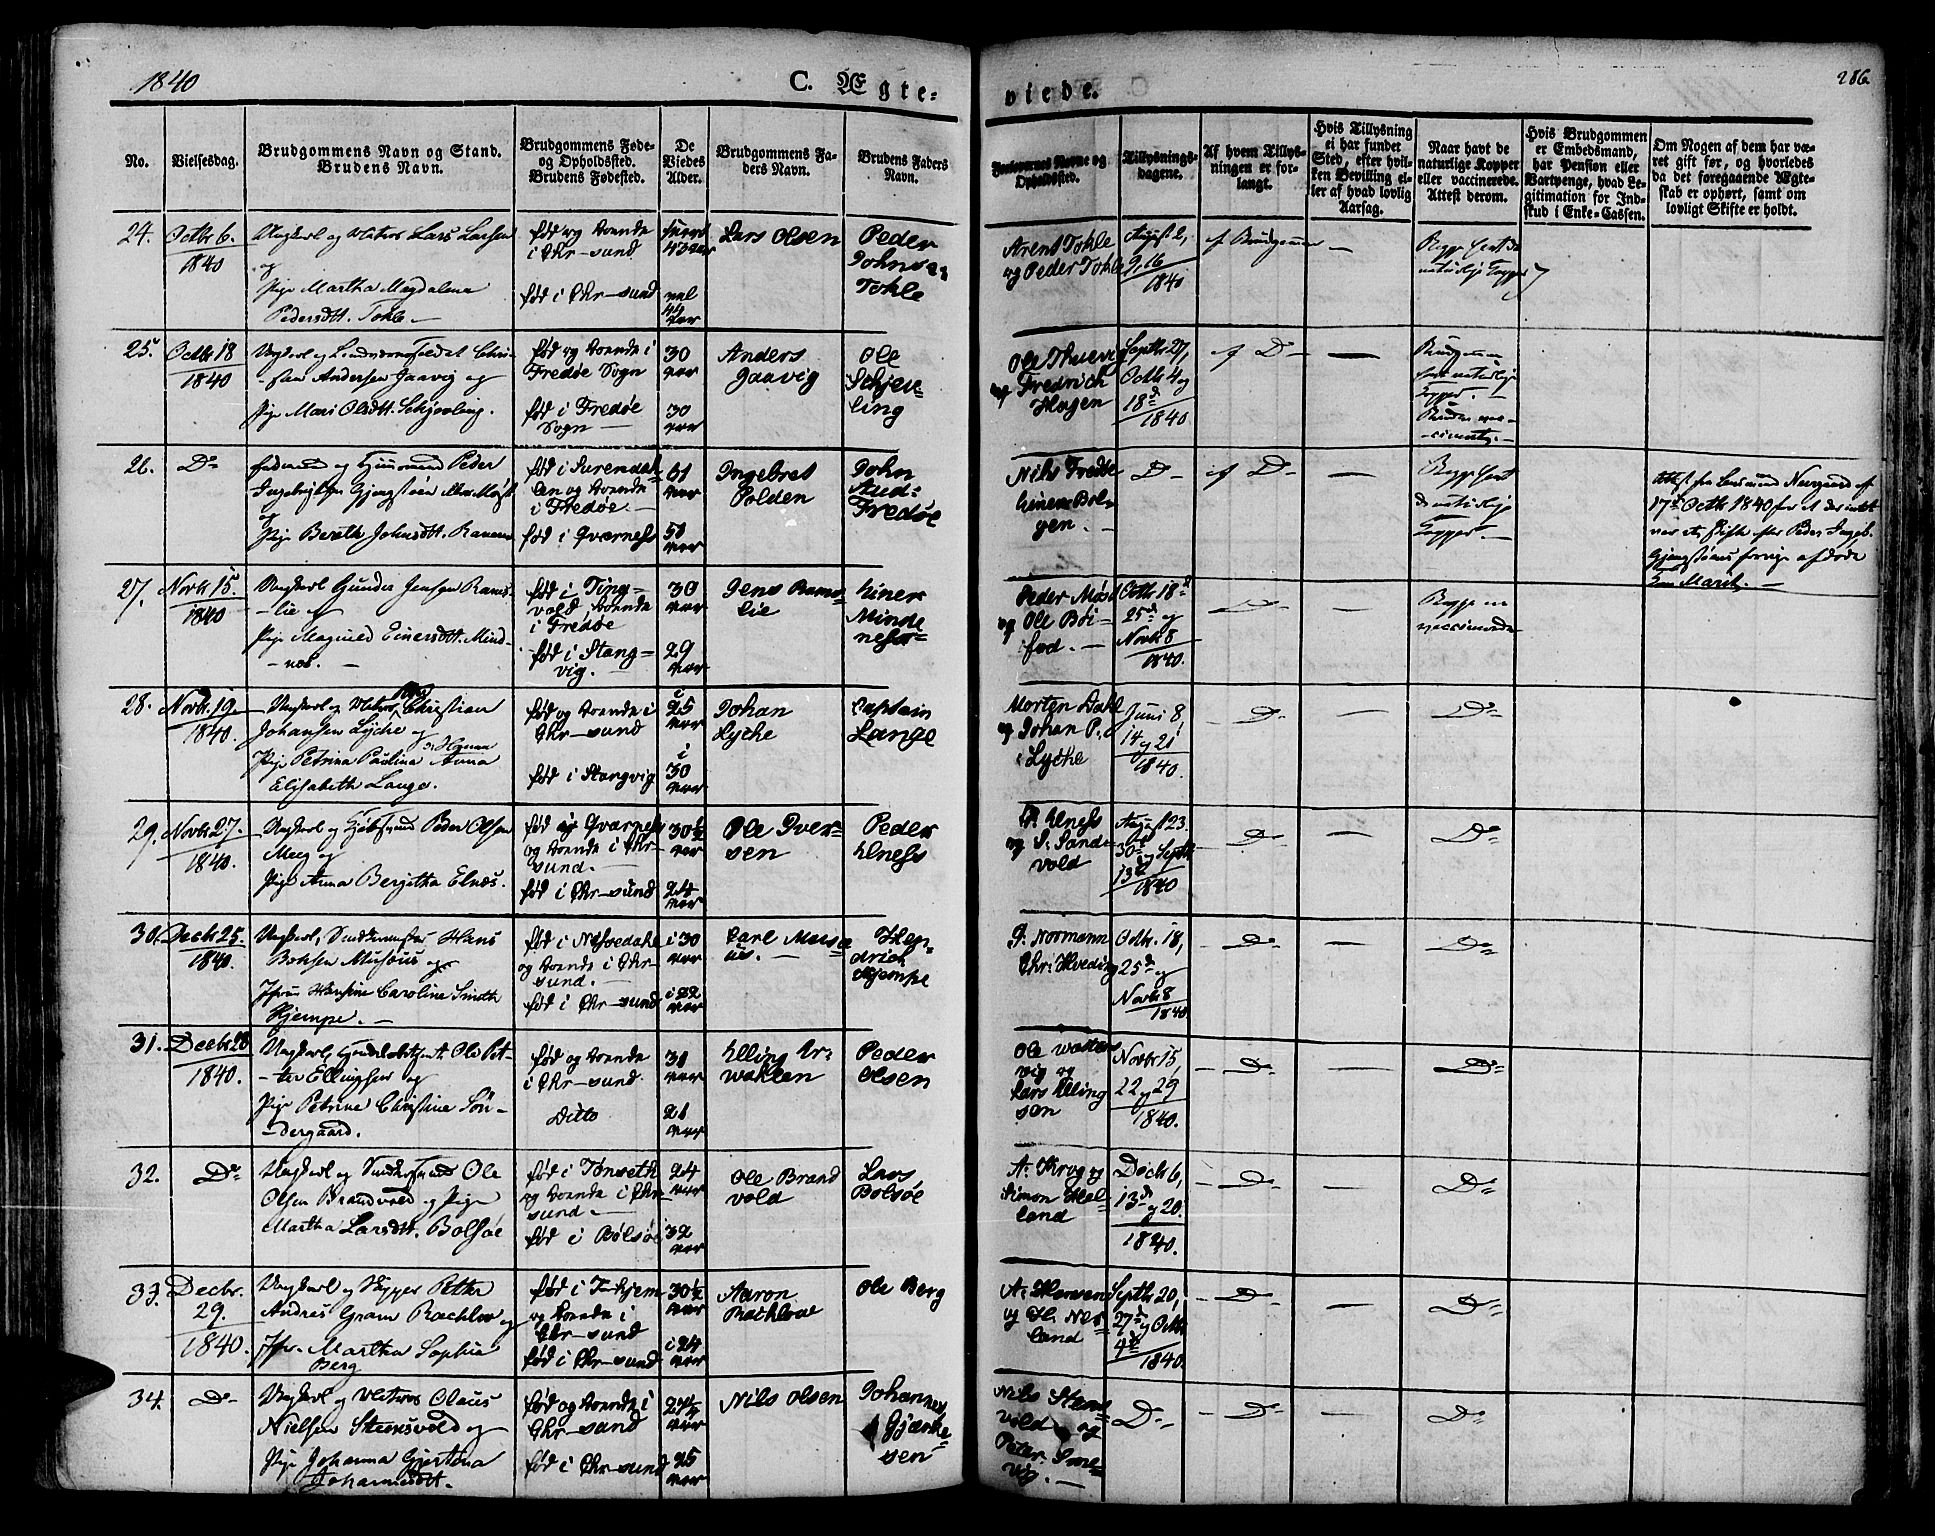 1840
C. Ægte=
viede.
286
No.
Vielsesdag.
Brudgommens Navn og Stand.
Brudens Navn.
Brudgommens Føde=
og Opholdssted.
Brudens Fødested.
De
Viedes
Alder.
Brudgommens Fa=
ders Navn.
Brudens Faders
Navn.
Forlovernes Navne og
Opholdssted.
Tillysnings=
dagene.
Af hvem Tillys=
ningen er for=
langt.
Hvis Tillysning
ei har fundet
Sted, efter hvil=
ken Bevilling el=
ler af hvad lovlig
Aarsag.
Naar havt de
naturlige Kopper
eller vaccinerede.
Attest derom.
Hvis Brudgommen
er Embedsmand,
har Pension eller
Vartpenge, hvad Le=
gitimation for Ind=
skud i Enke=Cassen.
Om Nogen af dem har væ=
ret gift før, og hvorledes
da det foregaaende Ægte=
skab er ophørt, samt om
lovligt Skifte er holdt.
24.
Octbr 6.
1840
Ungkarl og Matros Lars Larsen
og
Pige Martha Magdalena
Pedersdtt. Tohle.
fød og boende
i Chr-sund
fød i Chr-sund
44
Lars Olsen
Peder
Tohle
Arent Tohle
og Peder Tohle
August 2,
9. 16
1840
af Brudgommen
—
Begge havt de
naturlige Kopper
25.
Octbr 18
1840
Ungkarl og Chri-
stian Andersen Gaavig og
Pige Mari Olsdtt. Schjevling.
fød og boende i
Fredøe Sogn
fød i Fredøe
Sogn
30
aar
30
aar
Anders
Gaavig
Ole
Schjev-
ling
Ole
og Fredrich
Hagen
Septbr 27,
Octbr 4 og
18d
1840
af Do
—
Brudgommen
havt naturlige
Kopper.
Bruden vac-
cineret.
26.
Do
Enkemand og Huusmand Peder
og
Pige Bereth Johnsdtt.
fød i Surendah-
len og boende
i Fredøe
fød i Qværness
61
aar
50
aar
Ingebret
Polden
John
Fredøe
Nils Fredøe
Einer Bol-
gen.
Do
af Do
—
Begge havt
de naturlige
Kopper.
Attest fra Lensmand Neergaard af
17d Octbr 1840 for at der intet
var at skifte efter Peder Ingeb.
Gjengstøens forrige afdøde
Kone Marit.
27.
Novbr 15.
1840
Ungkarl Gunder Jensen Rams-
lie og
Pige Magnild Einersdtt. Mind-
næs.
fød i Ting-
vold, boende
i Fredøe
fød i Stang-
vig.
30
aar
29
aar
Jens Rams-
lie
Einer
Minde
næss
Peder
og Ole Bøi-
fod.
Octbr 18d
25d og
Novbr 8
1840.
Do
—
Begge ere
vaccinerede
28.
Novbr 19.
1840.
Ungkarl og Matros Christian
Johansen Lyche og
Pige Petrina Paulina Anna
Elisabeth Lange.
fød og boende i
Chr-sund
fød i Stangvig
i
25
aar
i
30
aar
Johan
Lyche
Captain
Lange
Morten Dahl
og Johan P.
Lyche
Juni 8,
14 og 21
1840.
Do
—
Do
29.
Novbr 27.
1840.
Ungkarl og Peder Olsen
Meeg og
Pige Anna Bergitha Elnæs.
fød i Qværness
og boende i Chr-
sund.
fød i Chr-sund
30½
aar
24
aar
Ole Iver-
sen
Peder
Elness
P. Elness
og S. Sand-
vold
August 23.
30d og Septbr
13d
1840
Do
—
Do
30.
Decbr 25.
1840.
Ungkarl, Hans
Musæus og
Jfru Hansine Caroline Smith
Hjempe.
fød i
og boende i Chr-
sund.
fød i Chr-sund
i 30
aar
i 22
aar
Carl Musæ-
us.
Hen-
drich
Hjempe
P. Normann
Chr: Hveding
Octbr. 18,
25d og
Novbr 8
1840.
Do
—
Do
31.
Decbr 28
1840.
Ungkarl, Ole Pet-
ter Ellingsen og
Pige Petrine Christine Søn-
dergaard.
fød og boende
i Chr-sund.
Ditto
30
aar
21
aar
Elling Ar-
Peder
Olsen
Ole
vig og
Lars Elling
sen
Novbr 15,
22 og 29
1840.
Do
—
Do
32.
Do
Ungkarl og Ole
Olsen Brandvold og Pige
Martha Larsdtt. Bolsøe
fød i Tønseth
og boende i Chr-
sund.
fød i Bolsøe
24
aar
32
aar
Ole Brand
vold
Lars
Bolsøe
A: Krog og
Simon Hel-
land
Decbr 6,
13d
og 20.
1840.
Do
—
Do
33.
Decbr.
29.
1840.
Ungkarl og Skipper Petter
Andreas Gram Rachlow og
Jfr. Martha Sophia
Berg
og boende i
Chr-sund
fød i Chr-sund
30½
aar
i 24
aar
Aaron
Rachlow
Ole Berg
A: Hansen
og H. Nes-
land
Septbr 20,
27d og Octbr
4d
1840.
Do
—
Do
34.
Do
Ungkarl og Matros Olaus
Nielsen Steensvold og
Pige Johanna Gjertina
Johannesdtt.
fød og boende i
Chr-sund
fød i Chr-sund
aar
25
aar
Nils Olsen
Johannes
Gjærke-
sen
Nils Stens-
vold og
Peter Sme-
vig.
Do
Do
—
Do